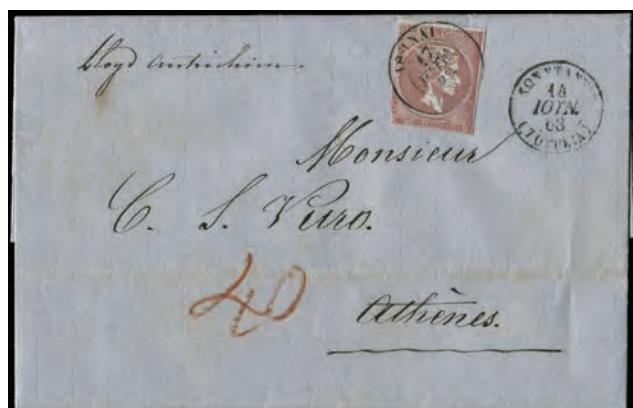 Lloyd autrichien.
ΑΘΗΝΑΙ
17
ΙΟΥΝ.
63
ΚΩΝΣΤΑΝ
14
ΙΟΥΝ.
63
(ΤΟΥΡΚΙΑ)
Monsieur
C. S. Vuro.
40
Athènes.